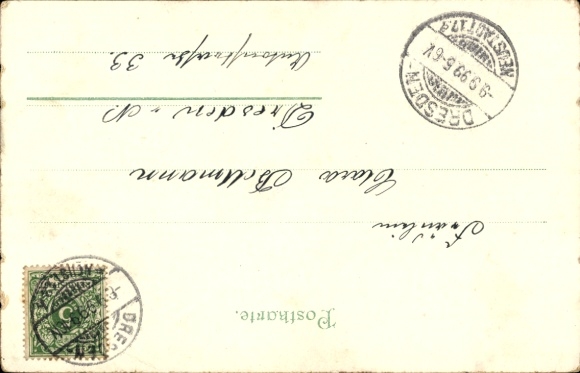 Postkarte.
Fräulein
Clara Bollmann
Dresden-N.
Antonstrasse 33.
DRESDEN-
NEUSTADT
9.9.99.5-6V.
5